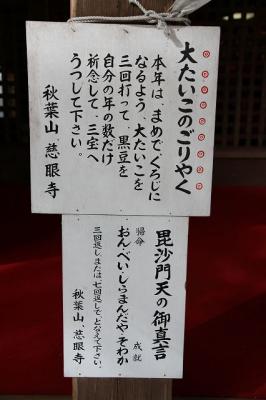 大たいこのごりやく
本年は、まめで、くろじに
なるよう、大たいこを
三回打って、黒豆を
自分の年の数だけ
祈念して、三宝へ
うつして下さい。
秋葉山 慈眼寺
毘沙門天の御真言
帰命 成就
おん・べい・しらまんだや・そわか
三回返し、または、七回返しで、となえて下さい。
秋葉山 慈眼寺